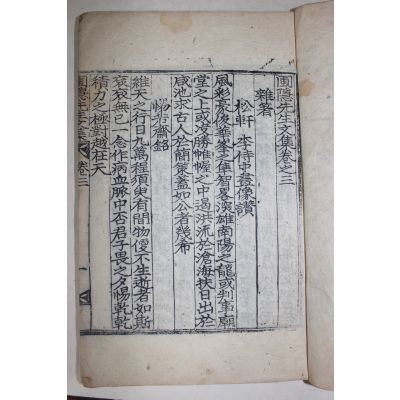 圃隱先生文集卷之三
雜著
松軒李侍中畫像讚
風彩豪俊華峯之隼智略深雄南陽之龍或判事廟
堂之上或決勝帷幄之中遏洪流於滄海扶日出於
咸池求古人於簡策蓋如公者幾希
惕若齋銘
維天之行日九萬程須臾有間物便不生逝者如斯
袞袞無已一念作病血脈中否君子畏之夕惕乾乾
積力之極對越在天
圃隱先生文集 卷三 一